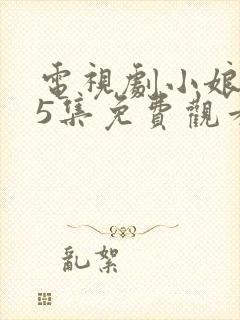 電視劇小娘
5集免費觀
亂絮